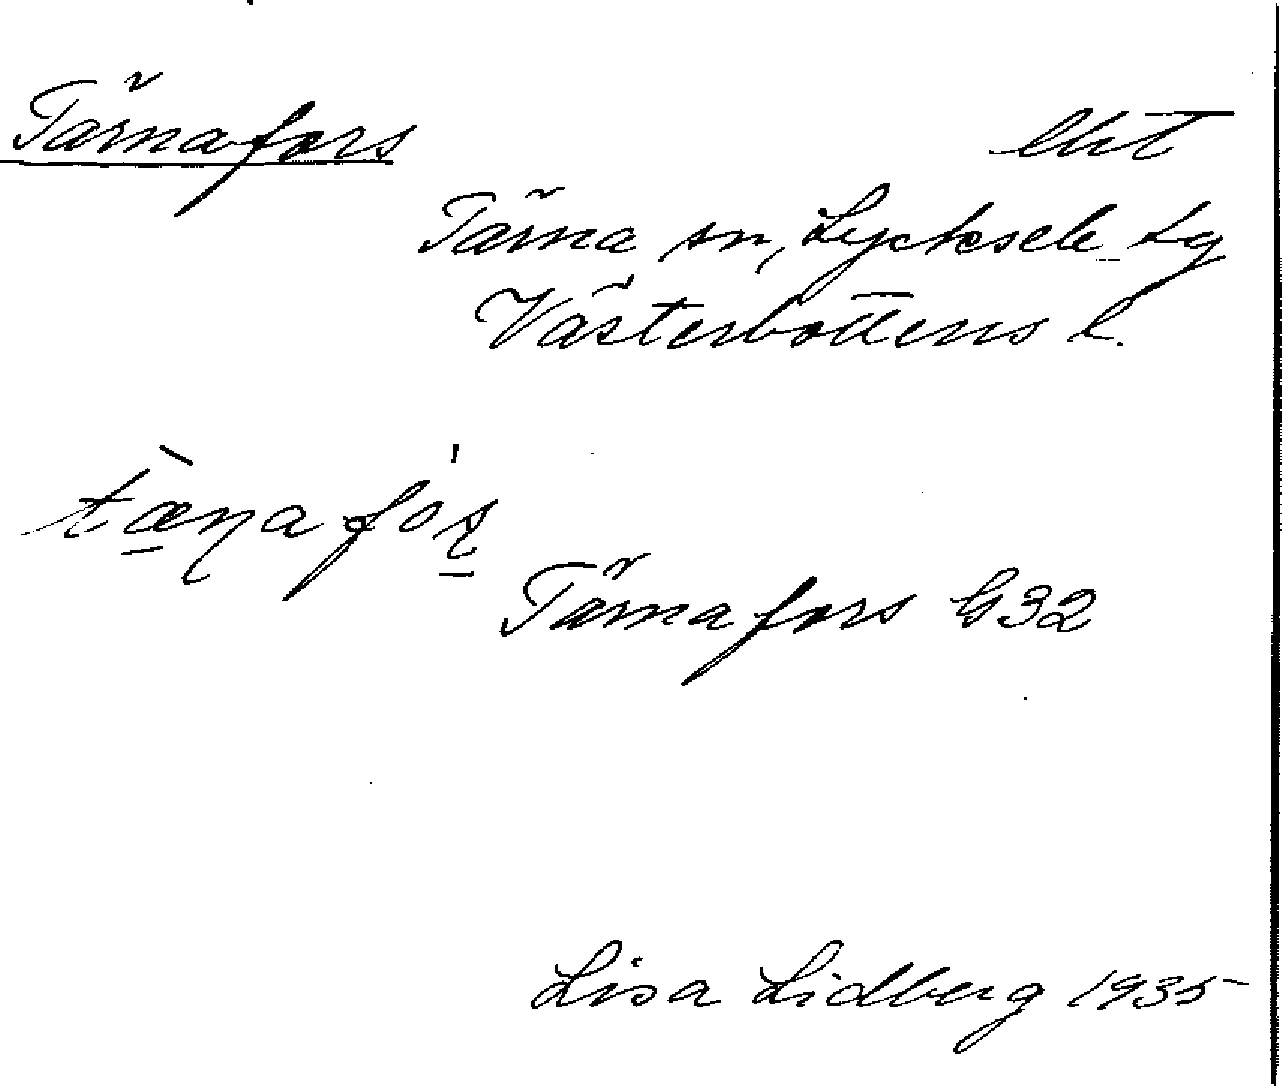 Tärnafors
Tärna sn, Lycksele lg
Västerbottens l.
Tärnafors G32
Lisa Lidberg 1935